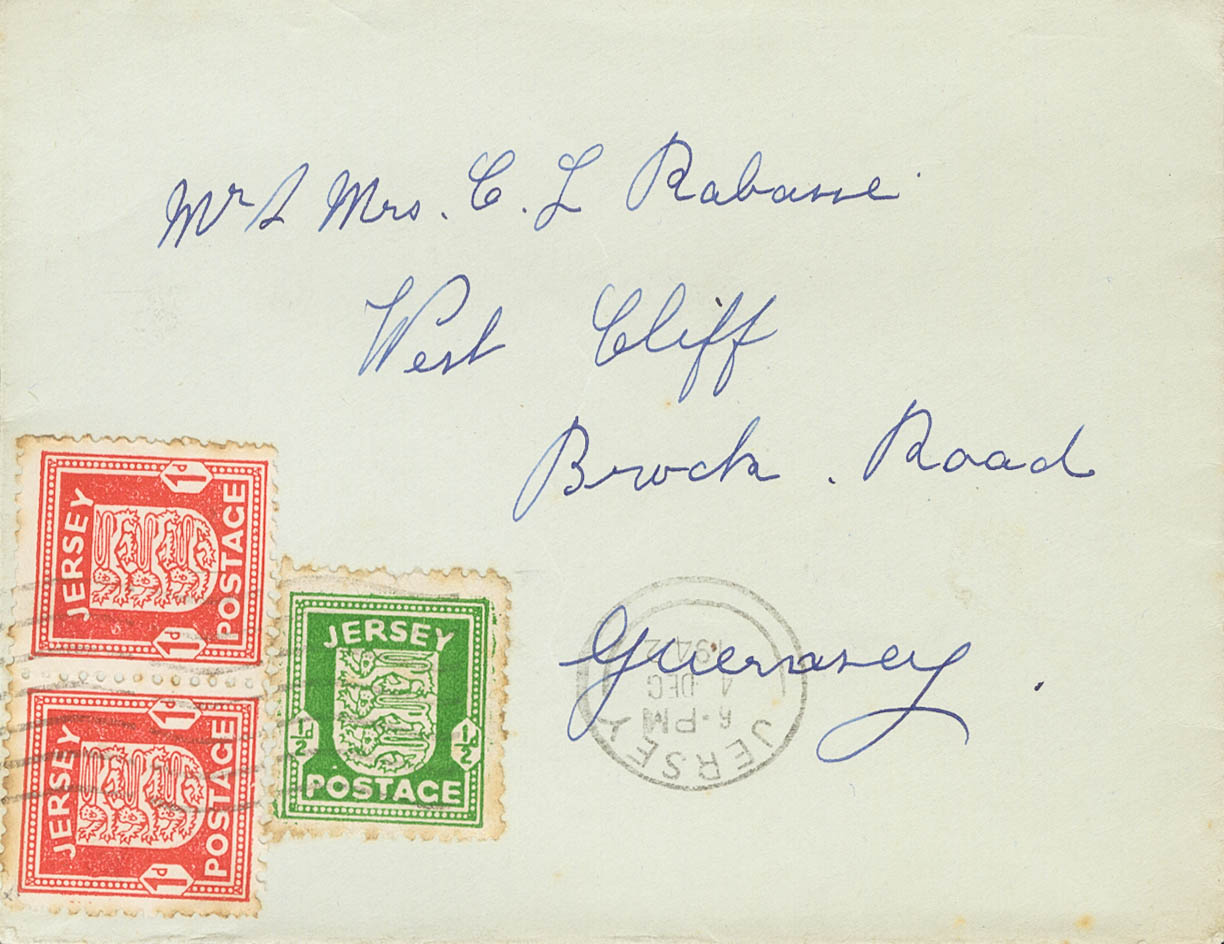 Mr & Mrs. C. L Rabasse
West Cliff
Brock. Road
Guernsey.
JERSEY
1D
POSTAGE
1D
JERSEY
1D
POSTAGE
1D
JERSEY
½d
½d
POSTAGE
JERSEY
6-PM
4 DEC
1942